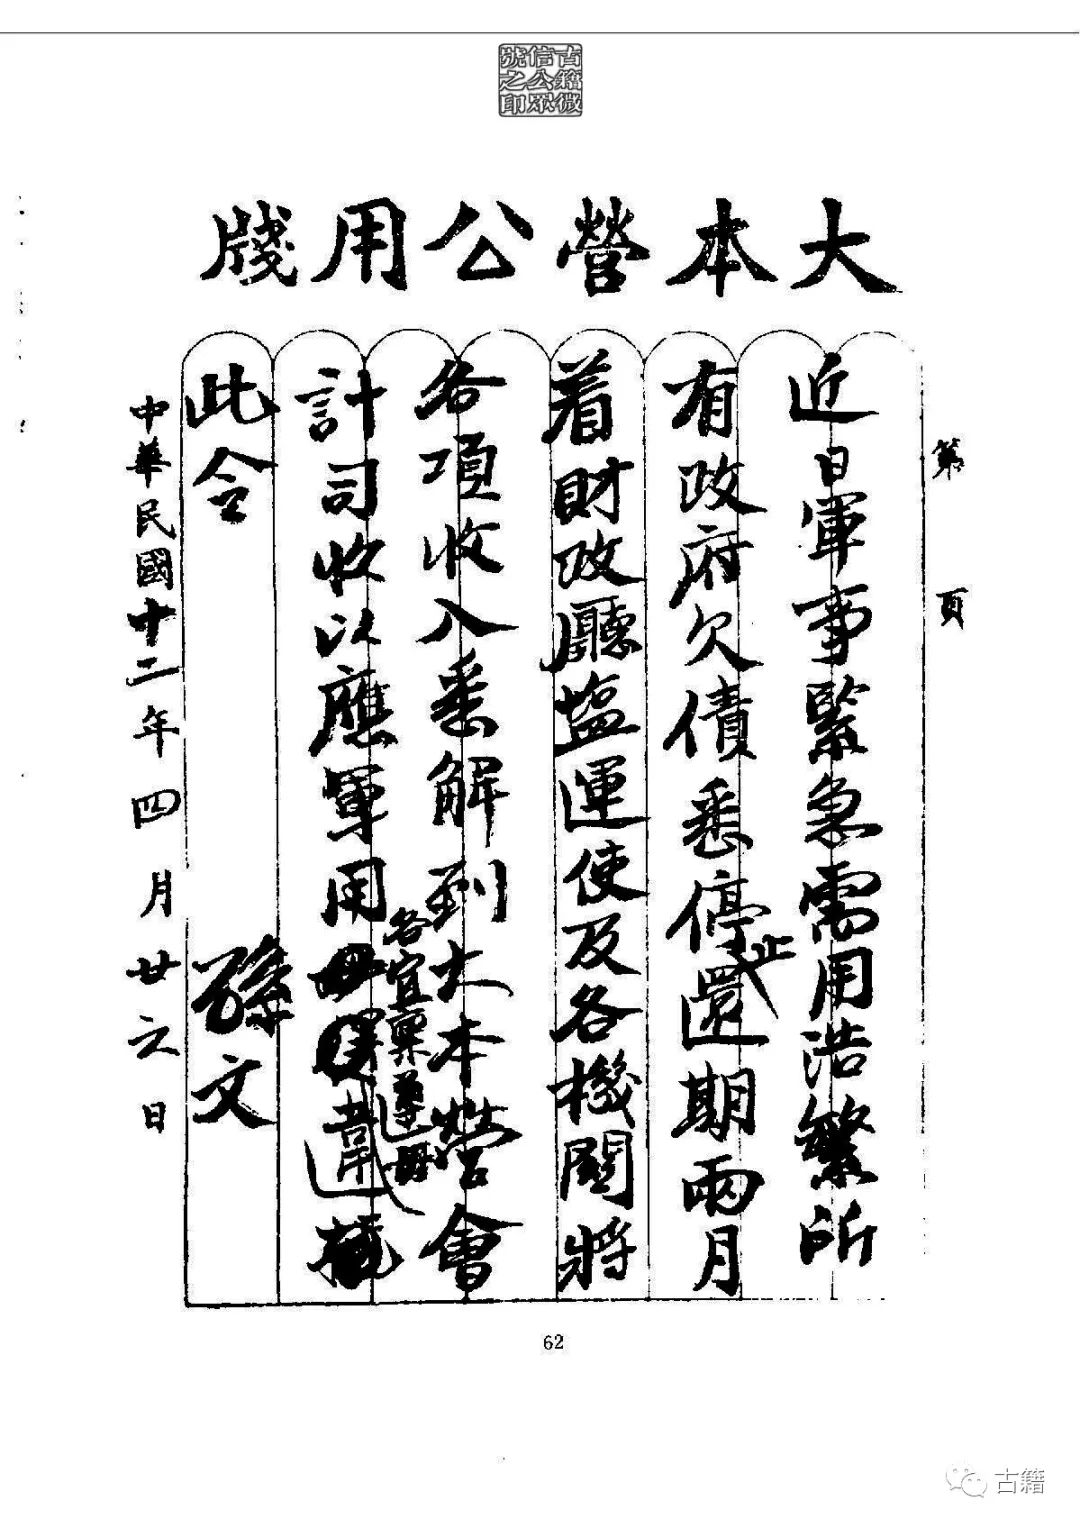 古籍微
信公眾
號之印
大本營公用牋
第 頁
近日軍事緊急需用浩繁所
有政府欠債悉停止還期兩月
着財政廳塩運使及各機關將
各項收入悉解到大本營會
計司收以應軍用
各宜稟遵毋
違
此令 孫文
中華民國十二年四月廿六日
62
古籍